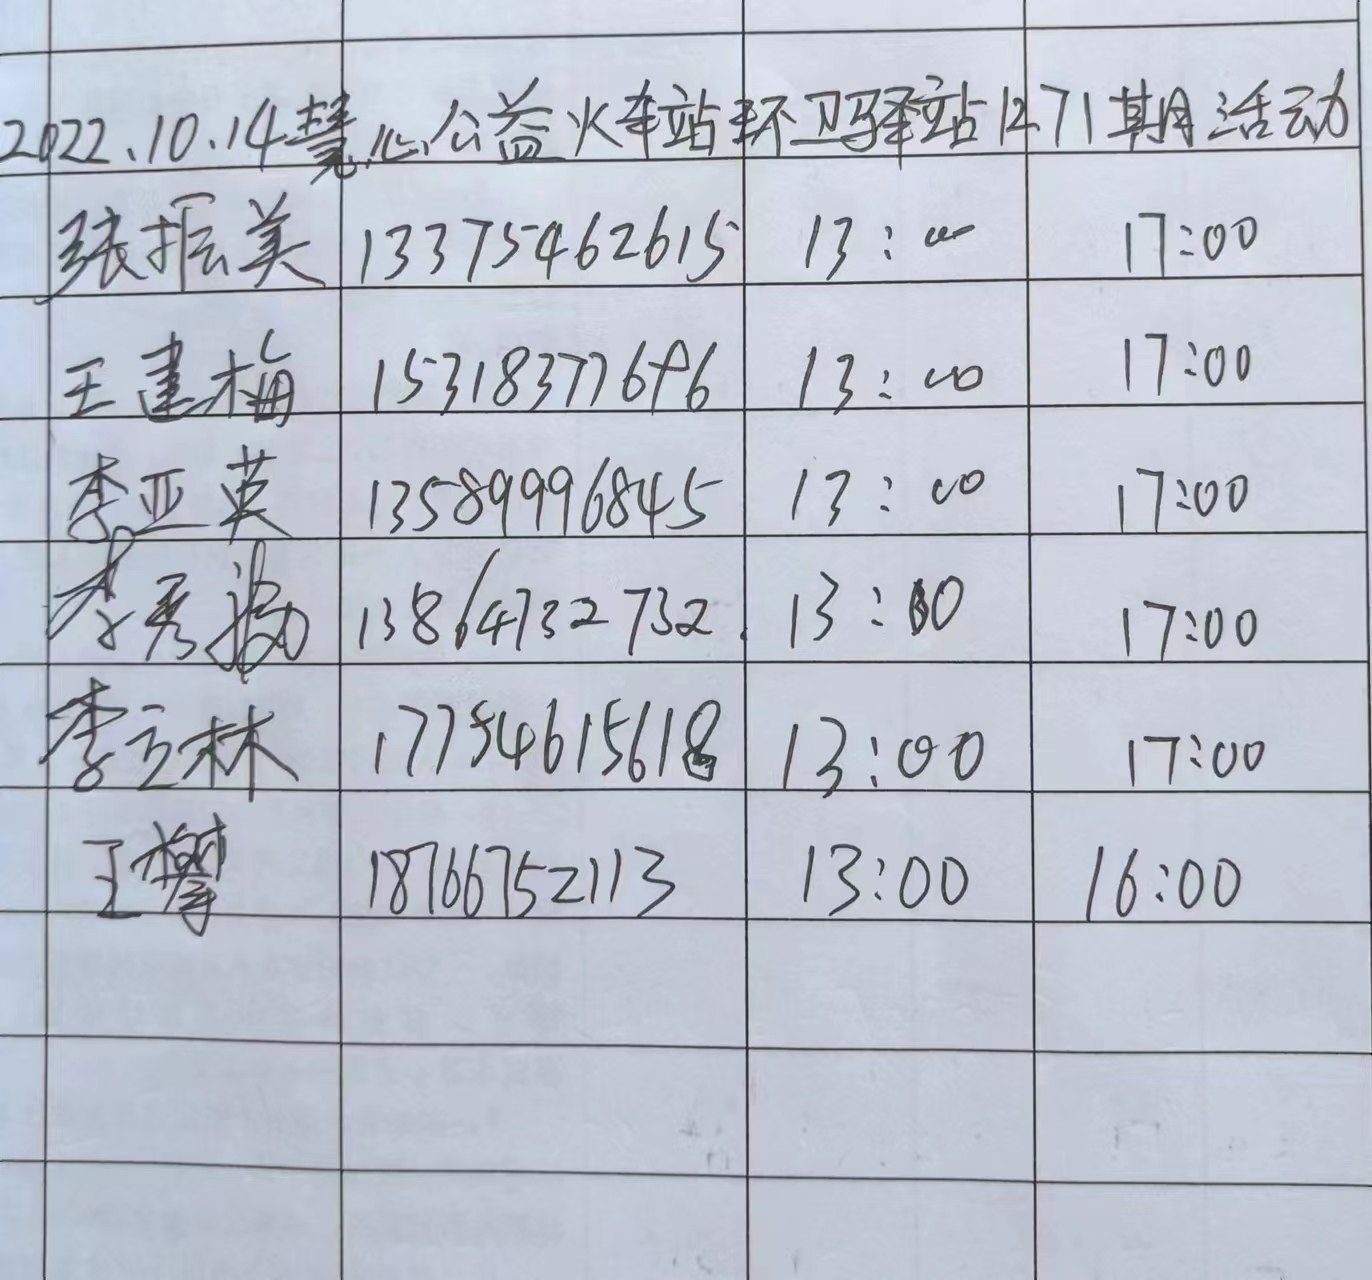 2022.10.14慧心公益火车站环卫驿站1271期活动
张振美 13375462615 13:00 17:00
王建梅 15318377696 13:00 17:00
李亚英 13589996845 13:00 17:00
李秀 13864732732 13:00 17:00
李立林 17754615618 13:00 17:00
王攀 18766752113 13:00 16:00